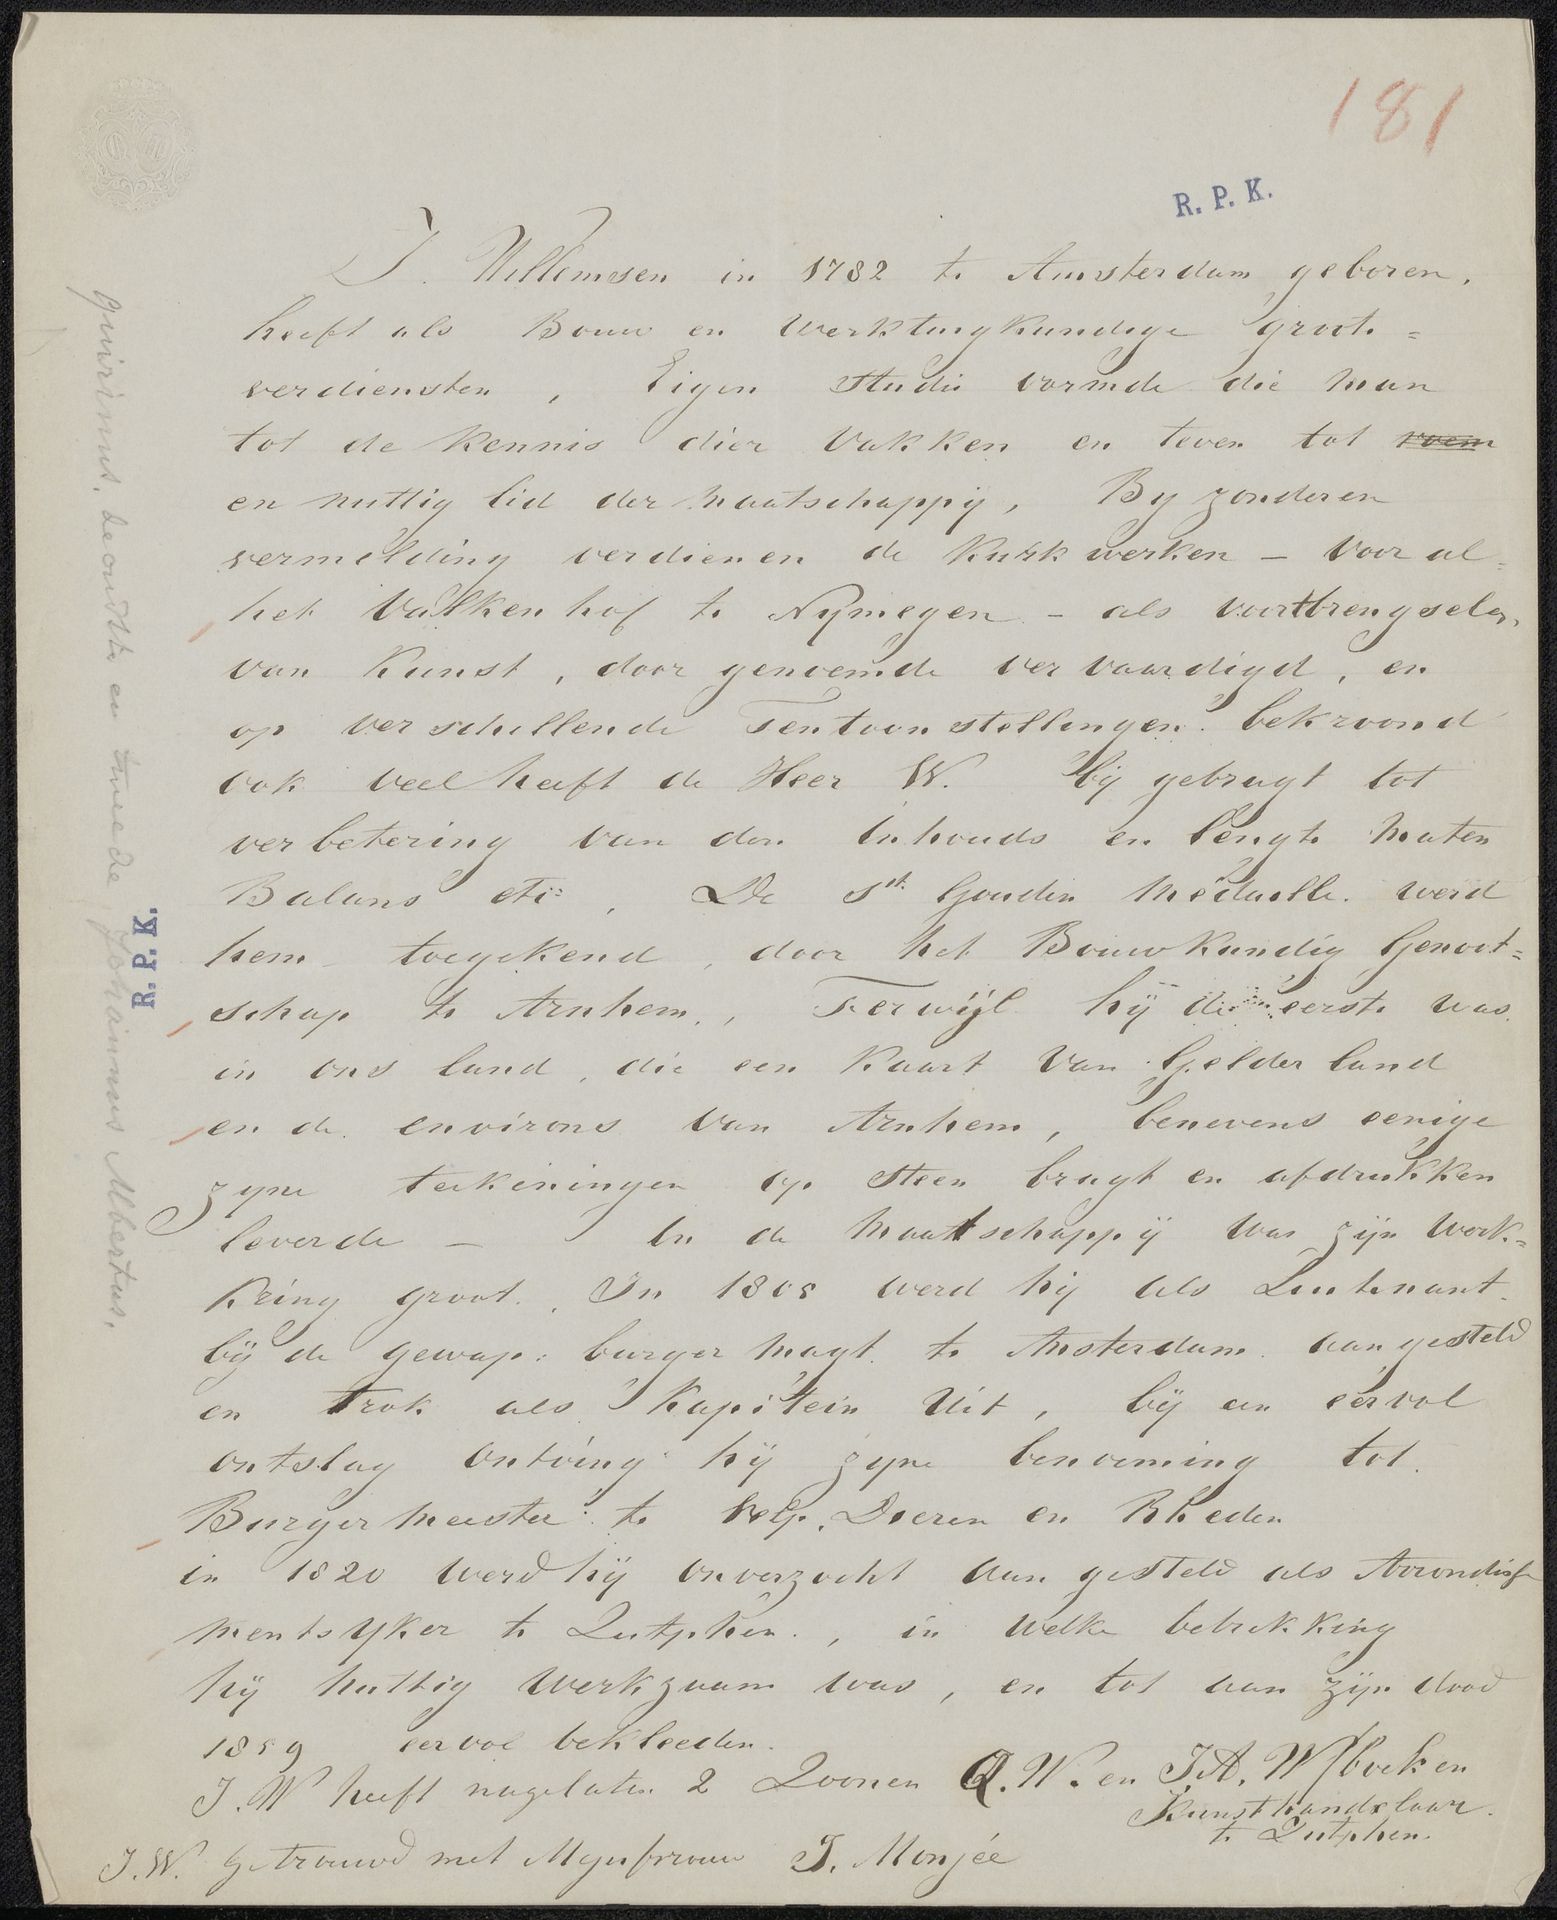 181
R. P. K.
J. Willemsen in 1782 te Amsterdam geboren,
heeft als Bouw en Werktuigkundige groote =
verdiensten, Eigen studie vormde die man
tot de kennis dier vakken en teven tot roem
en nuttig lid der maatschappij, Byzonderen
vermelding verdienen de kurkwerken – voor al =
het Valkenhof te Nymegen – als voortbrengselen,
van kunst, door genoemde vervaardigd, en
op verschillende Tentoonstellingen bekroond
ook veel heeft de Heer W. bij gebragt tot
verbetering van den inhouds en lengte maten
Balans etc: , De 1st Gouden Medaille werd
hem toegekend, door het Bouwkundig Genoot =
schap te Arnhem, Terwijl hij de eerste was
in ons land, die een kaart van Gelderland
en de environs van Arnhem, benevens eenige
zyne teekeningen op steen bragt en afdrukken
leverde – In de maatschappij was zijn werk =
kring groot. In 1805 werd hij als Luitenant
bij de gewap: burger magt te Amsterdam aangesteld
en trok als Kapitein uit, bij een eervol
ontslag ontving hij zyne benoeming tot
Burgermeester te Velp, Dieren en Rheden
in 1820 werd hij onverzocht aangesteld als Arrondisse
mentsyker te Zutphen., in welke betrekking
hij nuttig werkzaam was, en tot aan zijn dood
1859 eervol bekleeden.
J. W heeft nagelaten 2 Zoonen Q. W. en J. A. W / boek en
Kunsthandelaar.
te Zutphen.
J. W. getrouwd met Mejufvrouw J. Monjée
Quirinus, de oudste en tweede Johannes Albertus.
R. P. K.